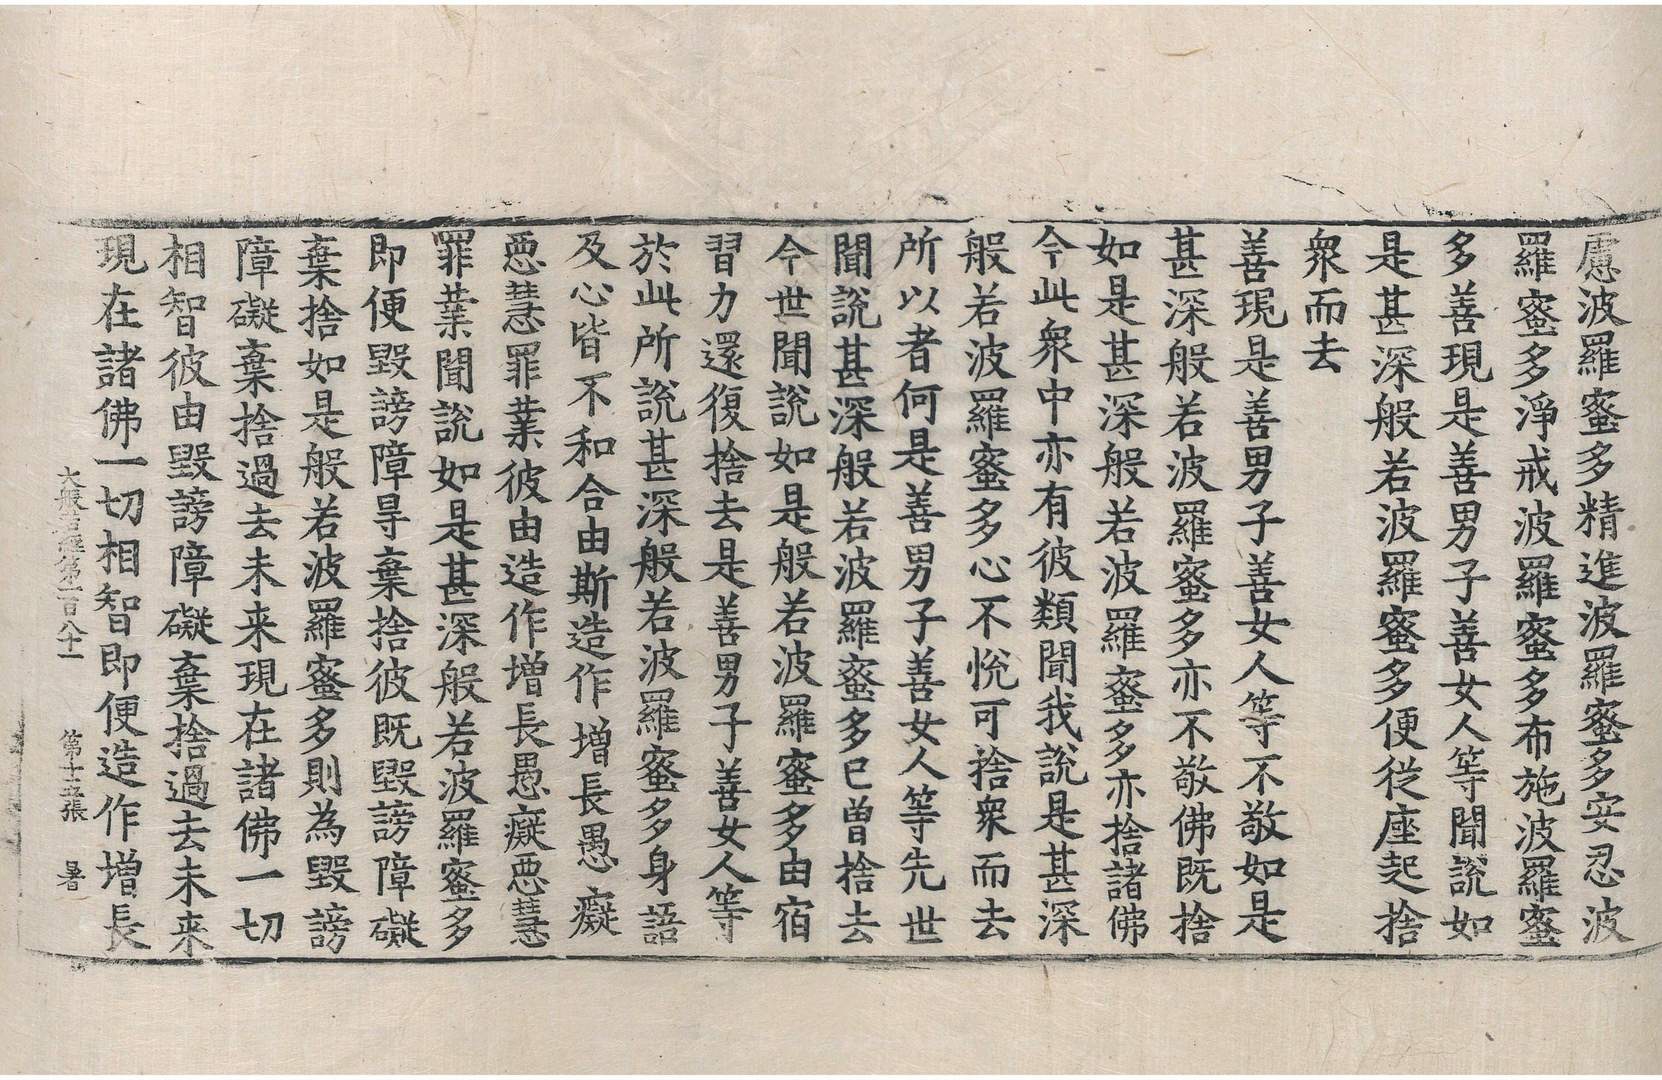 慮波羅蜜多精進波羅蜜多安忍波
羅蜜多淨戒波羅蜜多布施波羅蜜
多善現是善男子善女人等聞說如
是甚深般若波羅蜜多便從座起捨
衆而去
善現是善男子善女人等不敬如是
甚深般若波羅蜜多亦不敬佛既捨
如是甚深般若波羅蜜多亦捨諸佛
今此衆中亦有彼類聞我說是甚深
般若波羅蜜多心不悅可捨衆而去
所以者何是善男子善女人等先世
聞說甚深般若波羅蜜多已曽捨去
今世聞說如是般若波羅蜜多由宿
習力還復捨去是善男子善女人等
於此所說甚深般若波羅蜜多身語
及心皆不和合由斯造作增長愚癡
惡慧罪業彼由造作增長愚癡惡慧
罪業聞說如是甚深般若波羅蜜多
即便毀謗障㝵棄捨彼既毀謗障礙
棄捨如是般若波羅蜜多則為毀謗
障礙棄捨過去未来現在諸佛一切
相智彼由毀謗障礙棄捨過去未来
現在諸佛一切相智即便造作增長
大般若經第一百八十一 第十五張 暑